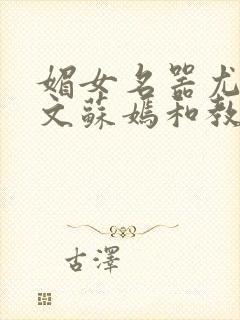 媚女名器尤
文蘇媽和教
古澤